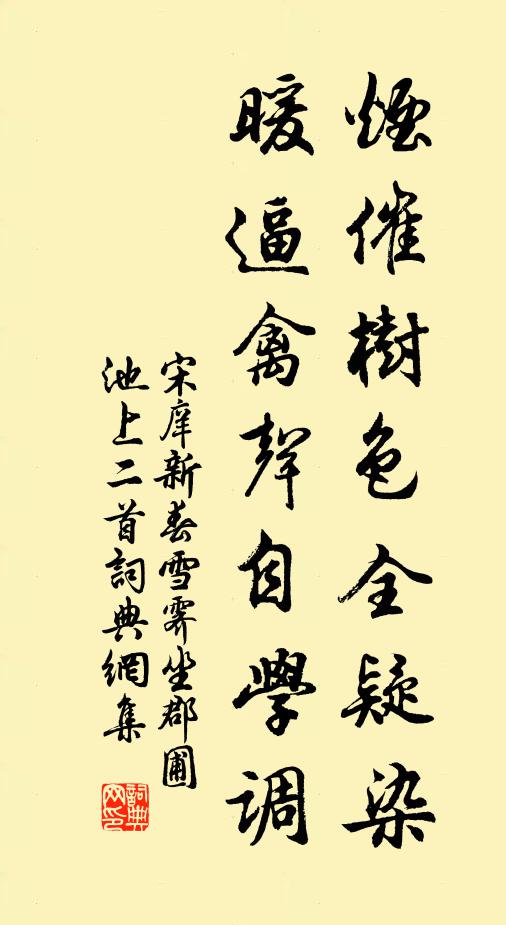 煙催樹色全疑染
暖逼禽聲自學調
宋庠新春雪霽坐郡圃
池上二首詞典網集
詞典
网印